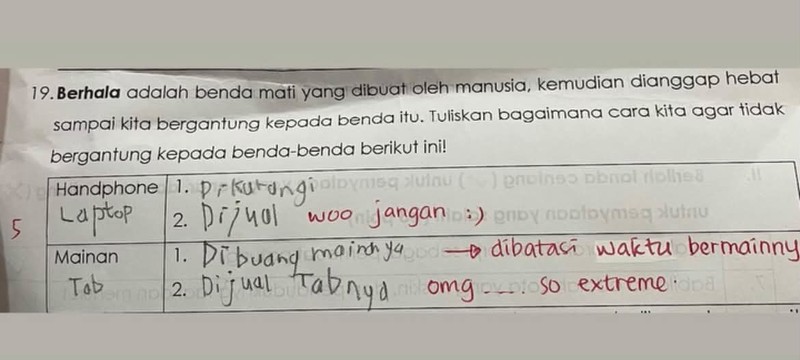 19. Berhala adalah benda mati yang dibuat oleh manusia, kemudian dianggap hebat
sampai kita bergantung kepada benda itu. Tuliskan bagaimana cara kita agar tidak
bergantung kepada benda-benda berikut ini!
Handphone 1. Dikurangi
Laptop 2. Dijual woo jangan :)
5
Mainan 1. Dibuang mainnya → dibatasi waktu bermainny
Tab 2. Dijual Tabnya omg .... so extreme.